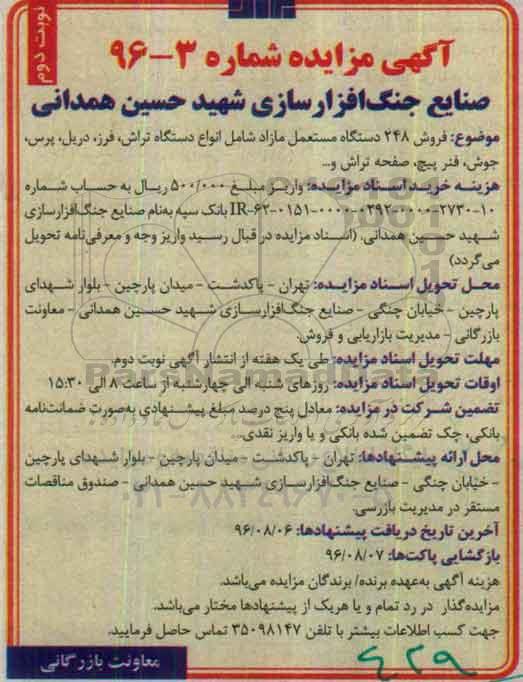 نوبت دوم
آگهی مزایده شماره ۳-۹۶
صنایع جنگ‌افزارسازی شهید حسین همدانی
موضوع: فروش ۲۴۸ دستگاه مستعمل مازاد شامل انواع دستگاه تراش، فرز، دریل، پرس،
جوش، فنر پیچ، صفحه تراش و...
هزینه خرید اسناد مزایده: واریز مبلغ ۵۰۰/۰۰۰ ریال به حساب شماره
IR-۶۲-۰۱۵۱-۰۰۰۰-۰۲۹۲-۰۰۰۰-۲۷۳۰-۱۰ بانک سپه به‌نام صنایع جنگ‌افزارسازی
شهید حسین همدانی. (اسناد مزایده در قبال رسید واریز وجه و معرفی‌نامه تحویل
می‌گردد)
محل تحویل اسناد مزایده: تهران - پاکدشت - میدان پارچین - بلوار شهدای
پارچین - خیابان چنگی - صنایع جنگ‌افزارسازی شهید حسین همدانی - معاونت
بازرگانی - مدیریت بازاریابی و فروش.
مهلت تحویل اسناد مزایده: طی یک هفته از انتشار آگهی نوبت دوم.
اوقات تحویل اسناد مزایده: روزهای شنبه الی چهارشنبه از ساعت ۸ الی ۱۵:۳۰
تضمین شرکت در مزایده: معادل پنج درصد مبلغ پیشنهادی به‌صورت ضمانت‌نامه
بانکی، چک تضمین شده بانکی و یا واریز نقدی.
محل ارائه پیشنهادها: تهران - پاکدشت - میدان پارچین - بلوار شهدای پارچین
- خیابان چنگی - صنایع جنگ‌افزارسازی شهید حسین همدانی - صندوق مناقصات
مستقر در مدیریت بازرسی.
آخرین تاریخ دریافت پیشنهادها: ۹۶/۰۸/۰۶
بازگشایی پاکت‌ها: ۹۶/۰۸/۰۷
هزینه آگهی به‌عهده برنده/ برندگان مزایده می‌باشد.
مزایده‌گذار در رد تمام و یا هریک از پیشنهادها مختار می‌باشد.
جهت کسب اطلاعات بیشتر با تلفن ۳۵۰۹۸۱۴۷ تماس حاصل فرمایید.
معاونت بازرگانی
۴۲۹